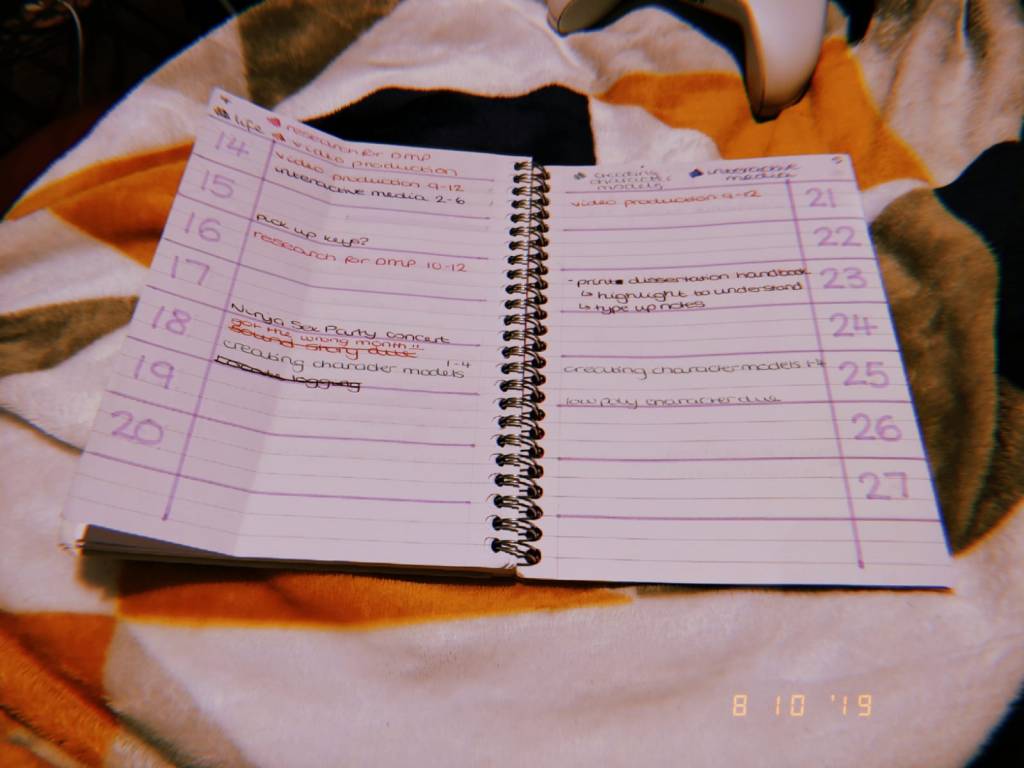 4
life
research for DMP
video production
14
video production 9-12
interactive media 2-6
15
pick up keys?
16
research for DMP 10-12
17
Ninja Sex Party concert
got the wrong month!!
18
creating character models 1-4
19
20
5
creating character models
interactive media
video production 9-12
21
22
- print dissertation handbook
↳ highlight to understand
↳ type up notes
23
24
creating character models 1-4
25
low poly character due
26
27
8 10 '19